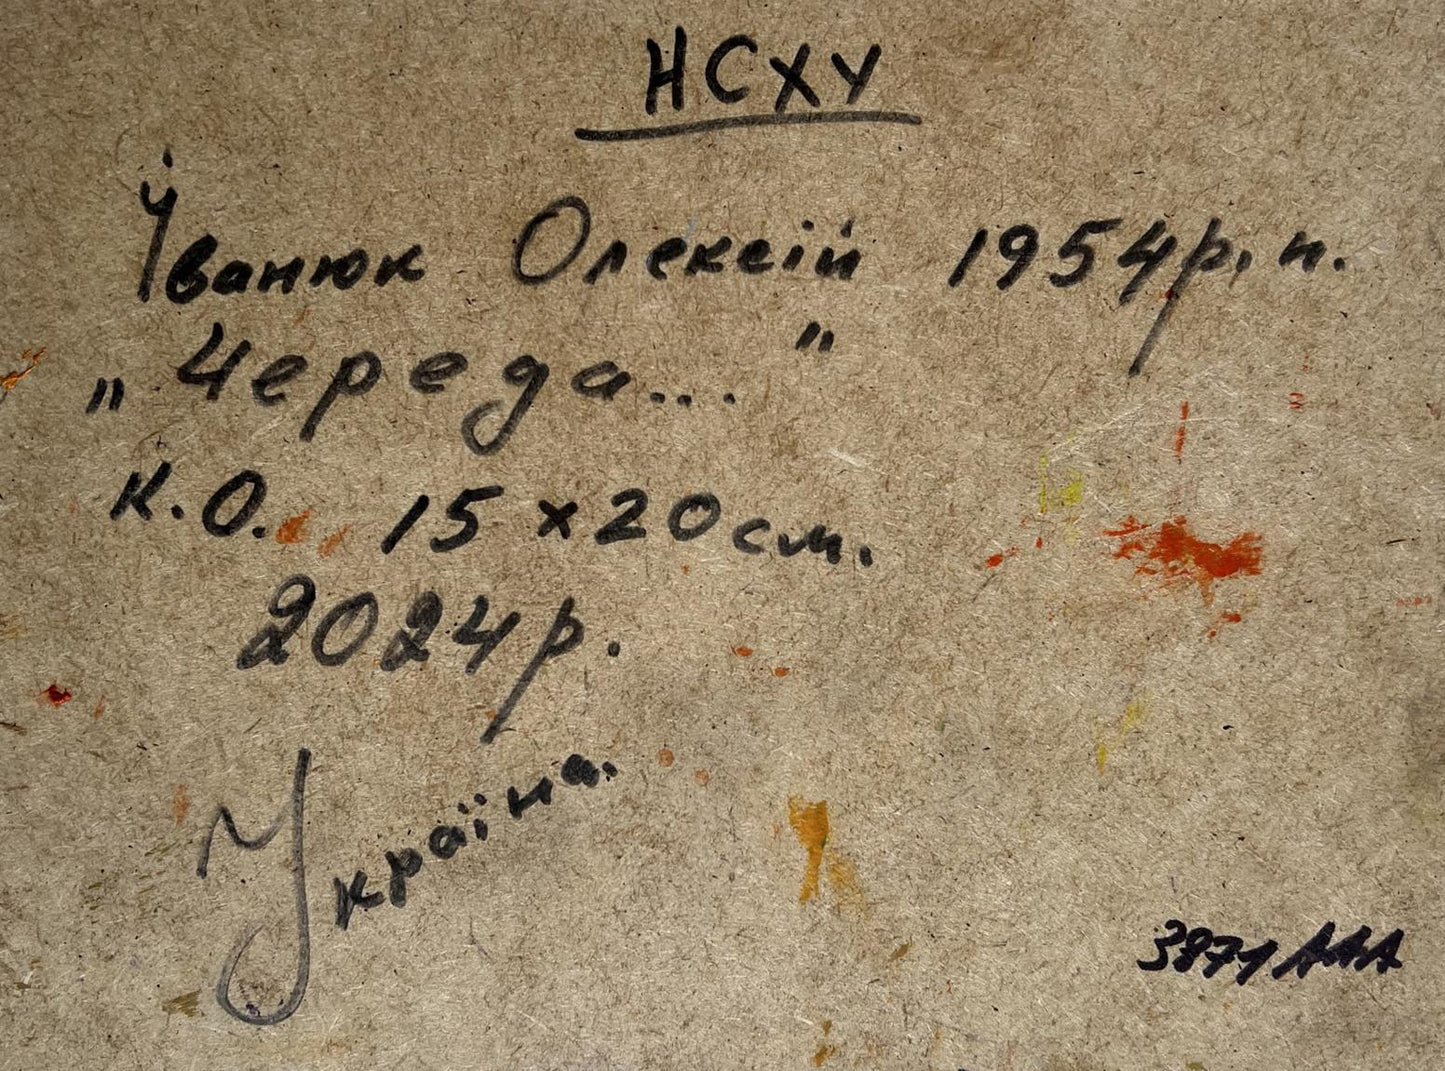 НСХУ
Іванюк Олексій 1954р.н.
„Череда..."
К.О. 15×20см.
2024р.
Україна.